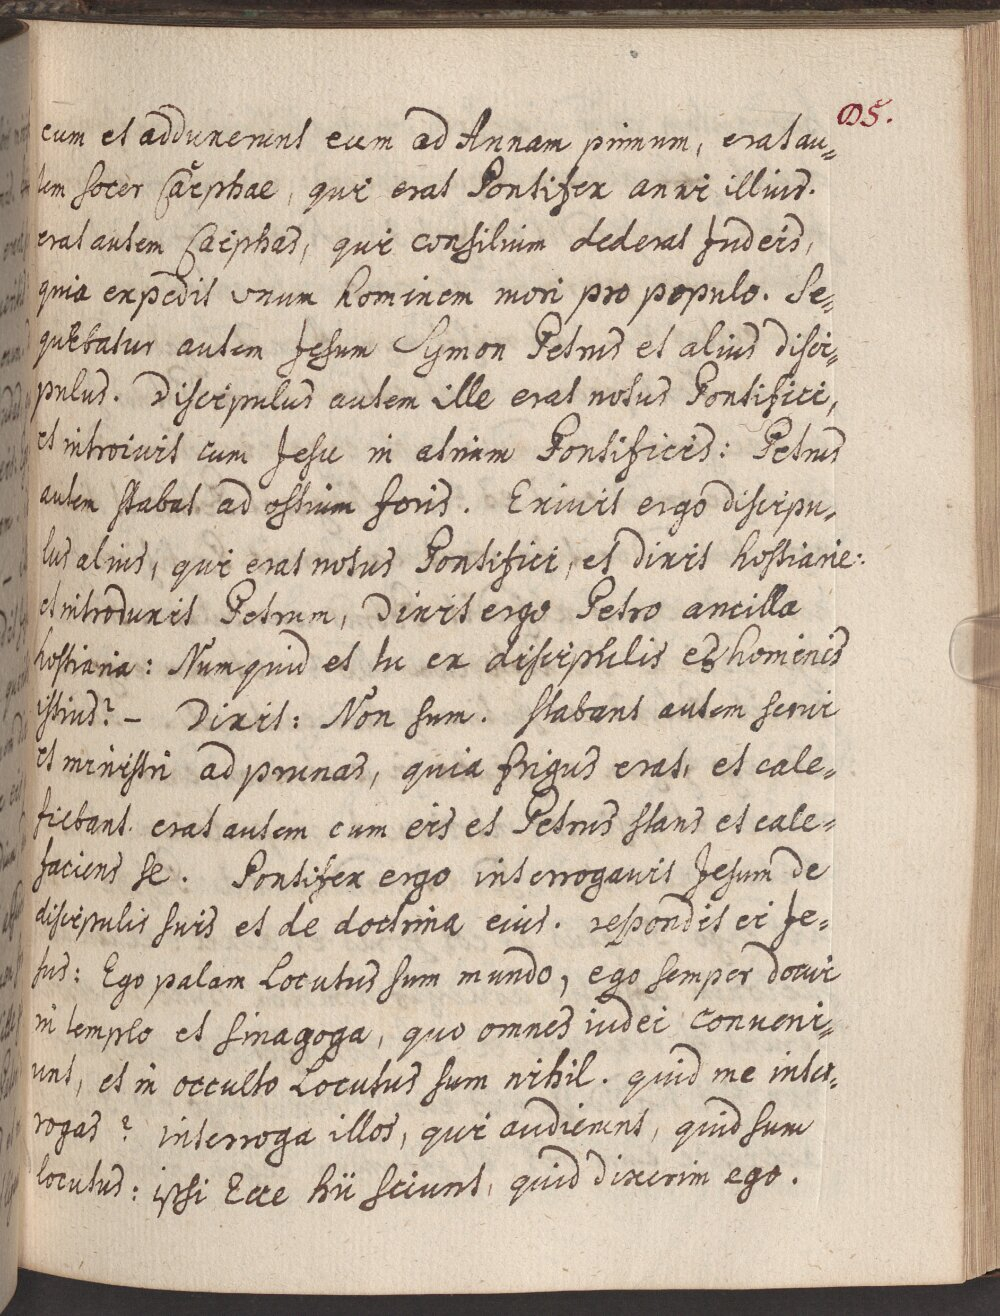 105.
eum et adduxerunt eum ad Annam primum, erat au=
tem socer Caiphae, qui erat Pontifex anni illius.
erat autem Caiphas, qui consilium dederat Judeis,
quia expedit vnum hominem mori pro populo. Se=
quebatur autem Jesum Symon Petrus et alius disci=
pulus. Discipulus autem ille erat notus Pontifici,
et introiuit cum Jesu in atrium Pontificis: Petrus
autem stabat ad ostium foris. Exiuit ergo discipu=
lus alius, qui erat notus Pontifici, et dixit hostiarie:
et introduxit Petrum, Dixit ergo Petro ancilla
hostiaria: Numquid et tu ex discipulis es hominis
istius? – Dixit: Non sum. stabant autem serui
et ministri ad prunas, quia frigus erat, et cale=
fiebant. erat autem cum eis et Petrus stans et cale=
faciens se. Pontifex ergo interrogauit Jesum de
discipulis suis et de doctrina eius. respondit ei Je=
sus: Ego palam Locutus sum mundo, ego semper docui
in templo et sinagoga, quo omnes iudei conueni=
unt, et in occulto Locutus sum nihil. quid me inter=
rogas? interroga illos, qui audierunt, quid sum
locutus: ipsi Ecce hii sciunt, quid dixerim ego.